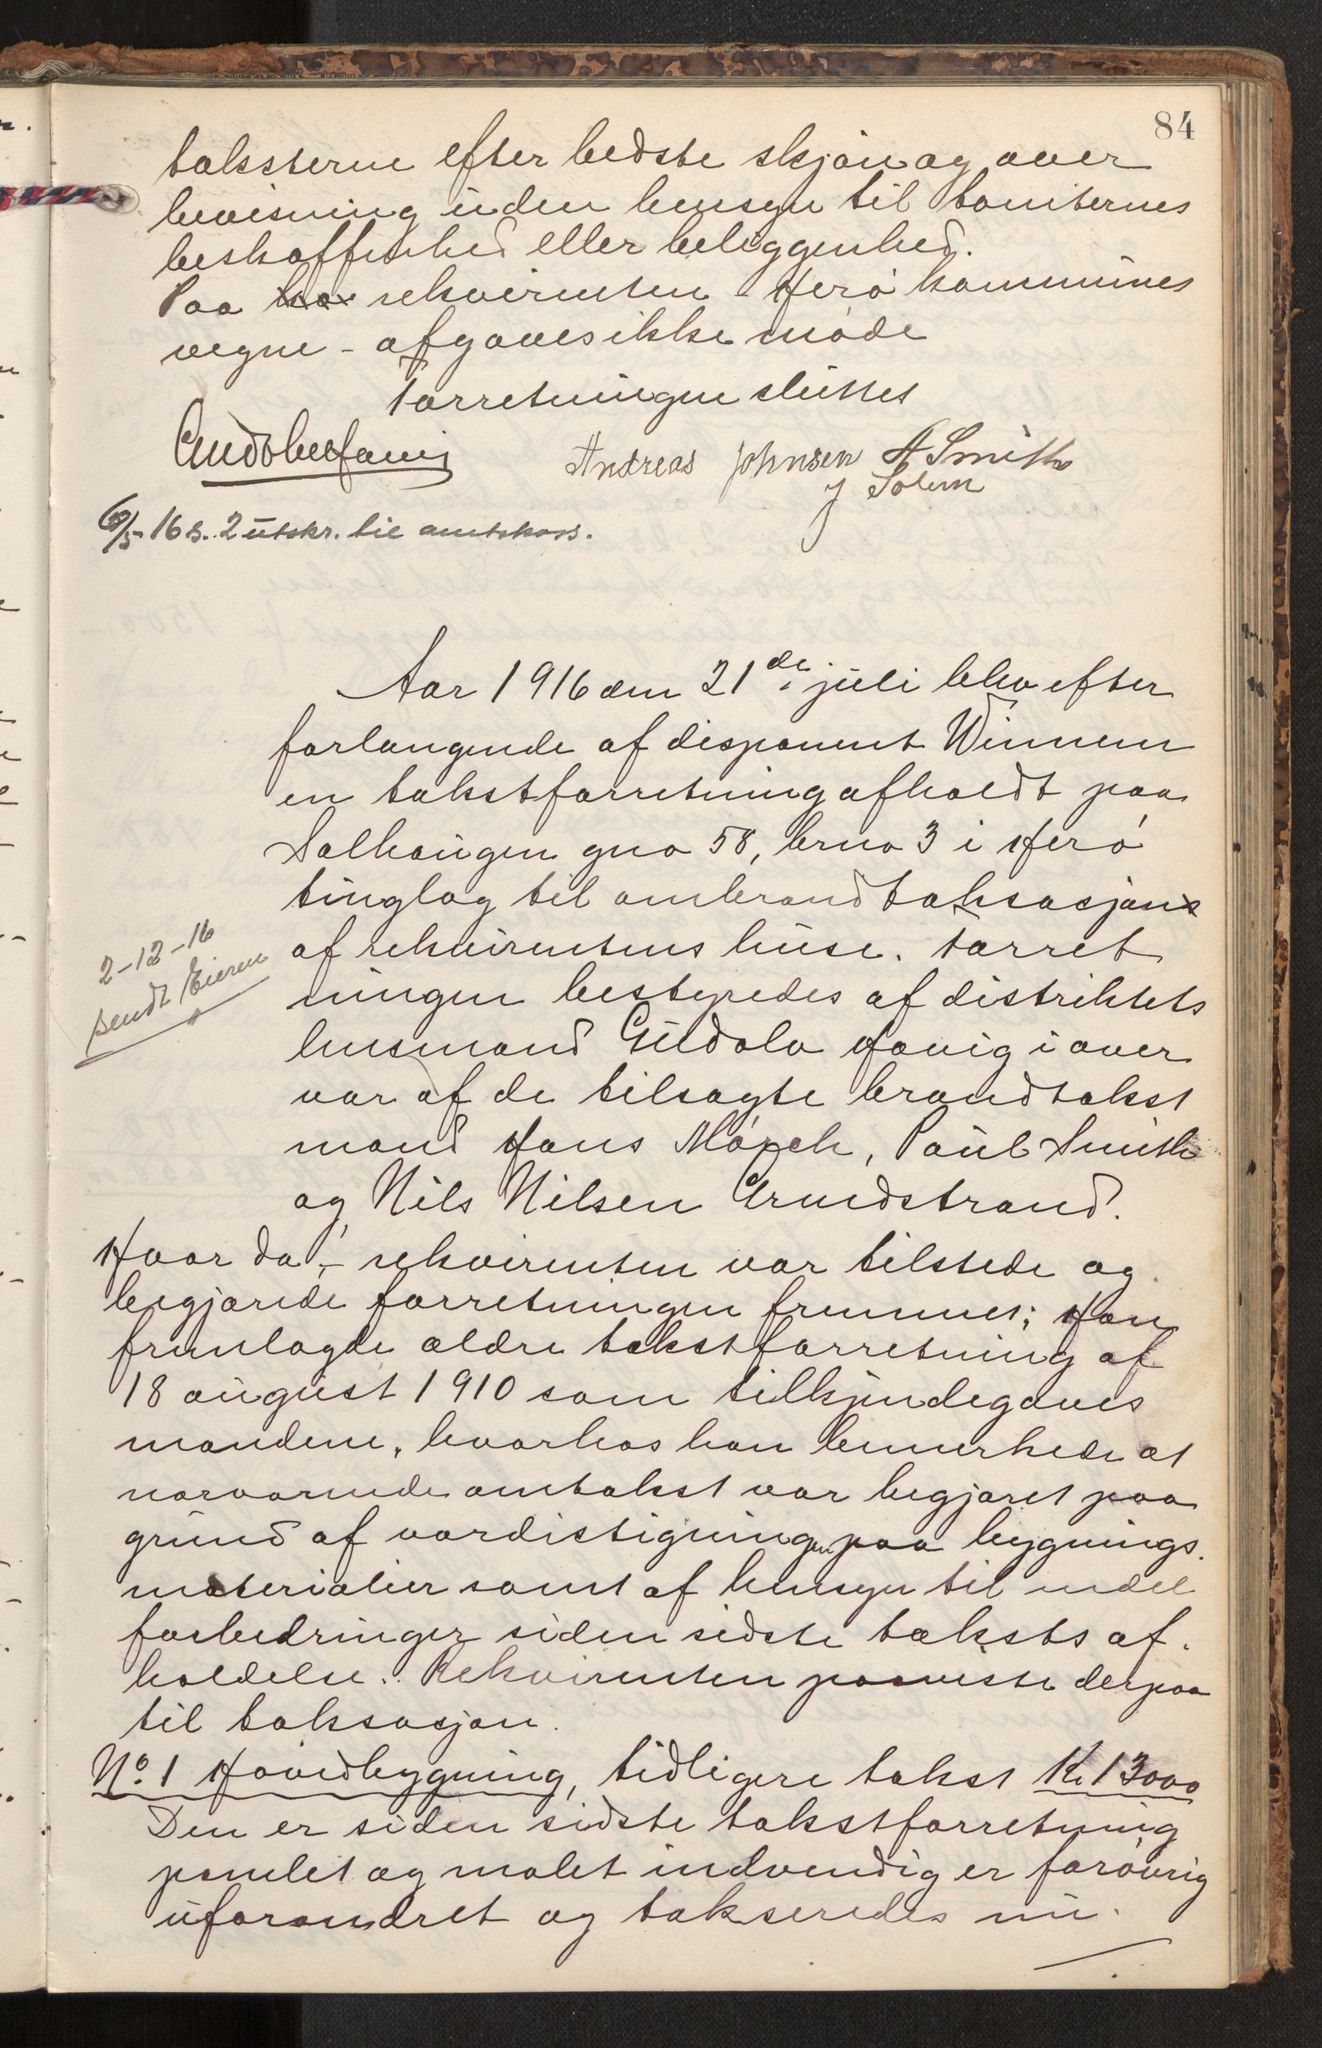 84
taksterne efter bedste skjøn og over
bevisning uden hensyn til tomternes
beskaffenhed eller beliggenhed.
Paa rekvirenten - Herø kommunes
vegne - afgaves ikke møde
Forretningen sluttet
Andreas Johnsen A Smith
J Solem
6/5-16 s. 2 utskr. til amtskass.
Aar 1916 den 21de juli blev efter
forlangende af disponent Winnem
en takstforretning afholdt paa
Salhaugen gno 58, brno 3 i Herø
tinglag til ombrandtaksasjon
af rekvirentens huse. Forret
ningen bestyredes af distriktets
lensmand Gudolv Favig i over
2-12-16
sendt Eieren
vær af de tilsagte brandtakst
mænd Hans Mørch, Paul Smith
og Nils Nilsen Grundstrand.
Hvor da, - rekvirenten var tilstede og
begjærede forretningen fremmet; Han
fremlagde ældre takstforretning af
18 august 1910 som tilkjendegaves
mændene, hvorhos han bemerkede at
nærværende omtakst var begjæret paa
grund af værdistigningen paa bygnings.
materialier samt af hensyn til endel
forbedringer siden sidste taksts af.
holdelse. Rekvirenten paaviste derpaa
til taksasjon.
No. 1 Hovedbygning, tidligere takst Kr 13000
Den er siden sidste takstforretning
panelet og malet indvendig er forøvrig
uforandret og takseredes nu.